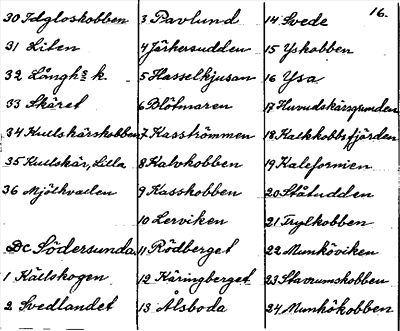 16.
30 Idgloskobben
31 Liten
32 Långhs k.
33 Skäret
34 Kullskärskobben
35 Kullskär, Lilla
36 Mjölkvaden
Dc Södersunda
1 Källskogen
2 Svedlandet
3 Pavlund
4 Järkersudden
5 Hasselkjusan
6 Blötmaren
7 Kasströmmen
8 Kalvkobben
9 Kasskobben
10 Lerviken
11 Rödberget
12 Käringberget
13 Ålsboda
14 Svede
15 Yskobben
16 Ysa
17 Huvudskärsgrunden
18 Kalkkobbsfjärden
19 Kalefornien
20 Ståtudden
21 Tuylkobben
22 Munköviken
23 Stavrumskobben
24 Munkökobben